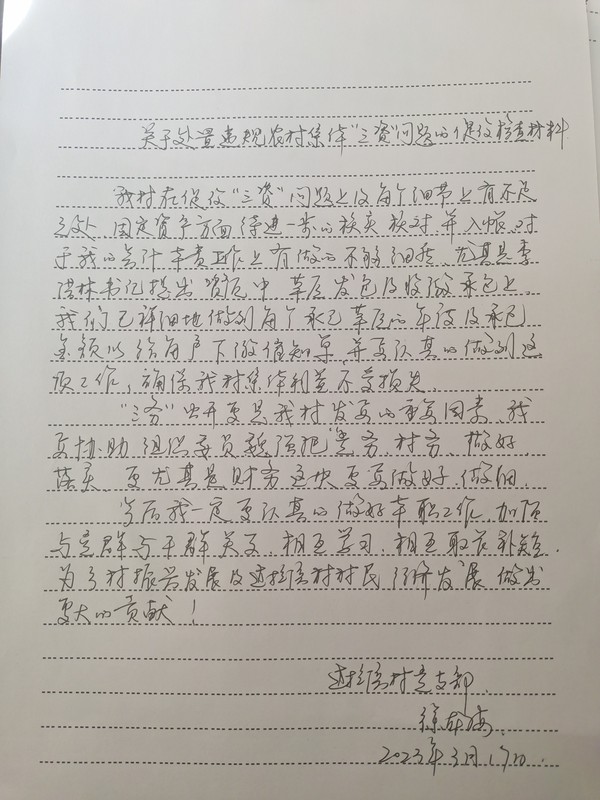 关于处置违规农村集体“三资”问题的促伩检查材料
我村在促伩“三资”问题上及每个细节上有不足
之处、固定资产方面待进一步的核实核对,并入帐,对
于我的会计本责工作上有做的不够细致,尤其是李
洪林书记提出资沅中草厡发包及收缴承包上,
我们已详细地做到每个承包草厡的年彶及承包
金额以给每户下缴借知单,并要认真的做到这
项工作,确保我村集体利益不受损失。
“三务”公开更是我村发要的重要因素,我
要协助组织委员彧须把党务、村务、做好、
落实,更尤其是财务这块更要做好、做细。
今后我一定更认真的做好本职工作,加强
与党群与干群关系,相互学习,相互取长补短,
为乡村振兴发展及村村民经济发展做出
更大的贡献!
村党支部
徐
2023年3月17日